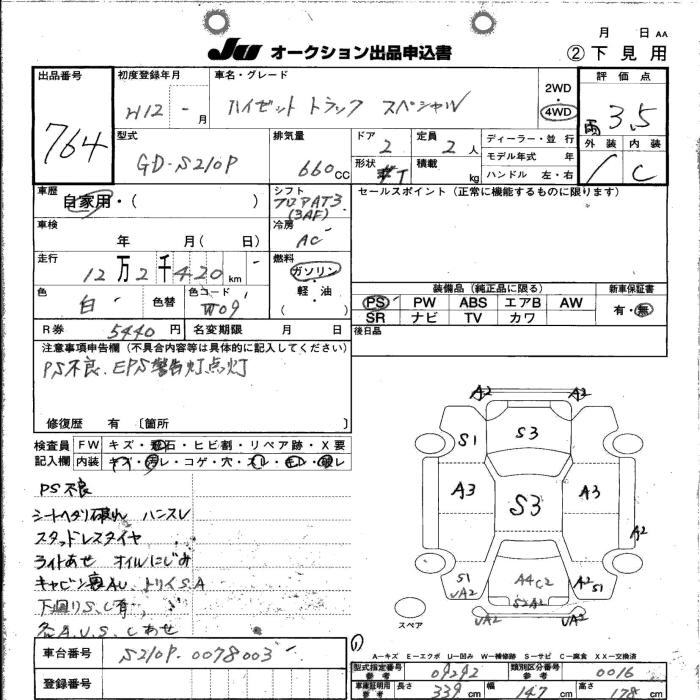 月 日 AA
JU オークション出品申込書 ②下見用
出品番号 初度登録年月 車名・グレード 2WD 評価点
764 H12 - 月 ハイゼット トラック スペシャル 4WD 雨 3.5
型式 排気量 ドア 定員 ディーラー・並行 外装 内装
GD-S210P 660cc 2 2人 モデル年式 年 / C
形状 積載 kg ハンドル 左・右
車歴 シフト セールスポイント(正常に機能するものに限ります)
自家用・( ) フロアAT3
(3AF)
車検 冷房
年 月( 日) AC
走行 燃料
12万2千420km ガソリン
軽・油
( 
装備品(純正品に限る) 新車保証書
色 色替 色コード
白 W09
PS PW ABS エアB AW 有・無
SR ナビ TV カワ
R券 5440円 名変期限 月 日 後日品
注意事項申告欄(不具合内容等は具体的に記入してください)
PS不良、EPS警告灯点灯
修復歴 有 〔箇所 〕
検査員 FW キズ・飛石・ヒビ割・リペア跡・X要
記入欄 内装 キズ・汚レ・コゲ・穴・スレ・モレ・破レ
PS不良
シートヘタリ破れ ハンスレ
スタッドレスタイヤ
ライトあせ オイルにじみ
キャビン裏AU、トリイS.A
下廻りS、C有
各A.U.S.Cあせ
A2 A2
S1 S3
A3 S3 A3
A2
S1 A4C2 A2 S1
UA2 S2A2
UA2 UA2
スペア
A-キズ E-エクボ U-凹み W-補修跡 S-サビ C-腐食 XX-交換済
車台番号 S210P-0078003
型式指定番号 参考 09292 類別区分番号 参考 0016
登録番号 車庫証明用 参考 長さ 339cm 幅 147cm 高さ 178cm